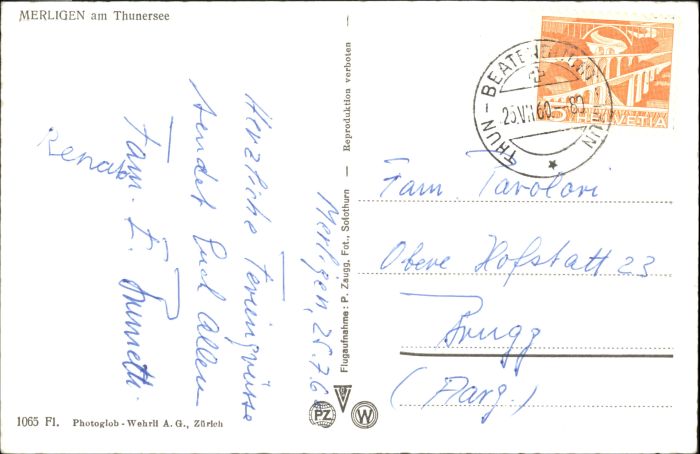 MERLIGEN am Thunersee
Merligen, 25.7.6
Herzliche Feriengrüsse
sendet Euch Allen
Fam. E.
Renato
1065 Fl. Photoglob - Wehrli A. G., Zürich
Flugaufnahme: P. Zaugg, Fot., Solothurn — Reproduktion verboten
PZ
W
THUN - BEATENBERG - THUN
25.VII.60
HELVETIA
Fam. Tavolori
Obere Hofstatt 23
Brugg
(Aarg.)